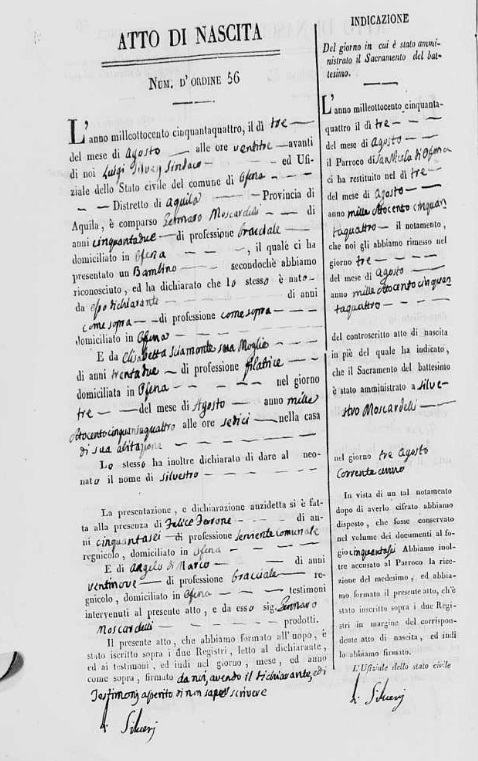 ATTO DI NASCITA
NUM. D'ORDINE 56
L'anno milleottocento cinquantaquattro, il dì tre
del mese di Agosto alle ore ventitre avanti
di noi Luigi Silverj Sindaco ed Ufi-
ziale dello Stato civile del comune di Ofena
Distretto di Aquila Provincia di
Aquila, è comparso Gennaro Moscardelli di
anni cinquantadue di professione bracciale
domiciliato in Ofena , il quale ci ha
presentato un Bambino secondochè abbiamo
riconosciuto, ed ha dichiarato che lo stesso è nato
da esso dichiarante di anni
come sopra di professione come sopra
domiciliato in Ofena
E da Elisabetta Sciamonte sua Moglie
di anni trentadue di professione filatrice
domiciliata in Ofena nel giorno
tre del mese di Agosto anno mille
ottocentocinquantaquattro alle ore sedici nella casa
di sua abitazione
Lo stesso ha inoltre dichiarato di dare al neo-
nato il nome di silvestro
La presentazione, e dichiarazione anzidetta si è fat-
ta alla presenza di Felice di an-
ni cinquantasei di professione serviente comunale
regnicolo, domiciliato in Ofena
E di Angelo di Marco di anni
ventinove di professione bracciale re-
gnicolo, domiciliato in Ofena testimoni
intervenuti al presente atto, e da esso sig. Gennaro
Moscardelli prodotti.
Il presente atto, che abbiamo formato all'uopo, è
stato iscritto sopra i due Registri, letto al dichiarante,
ed ai testimoni, ed indi nel giorno, mese, ed anno
come sopra, firmato da noi, avendo il dichiarante, ed i
Testimonj asserito di non saper scrivere
Silverj
INDICAZIONE
Del giorno in cui è stato ammi-
nistrato il Sacramento del bat-
tesimo.
L'anno milleottocento cinquanta-
quattro il dì tre
del mese di Agosto
il Parroco di San Nicola di Ofena
ci ha restituito nel dì tre
del mese di Agosto
anno mille ottocento cinquan
taquattro il notamento,
che noi gli abbiamo rimesso nel
giorno tre
del mese di Agosto
anno mille ottocento cinquan
taquattro
del controscritto atto di nascita
in piè del quale ha indicato,
che il Sacramento del battesimo
è stato amministrato a silve-
stro Moscardelli
nel giorno tre Agosto
Corrente anno
In vista di un tal notamento
dopo di averlo cifrato abbiamo
disposto, che fosse conservato
nel volume dei documenti al fo-
gio cinquantasei Abbiamo inol-
tre accusato al Parroco la rice-
zione del medesimo, ed abbia-
mo formato il presente atto, ch'è
stato inscritto sopra i due Regi-
stri in margine del corrispon-
dente atto di nascita, ed indi
lo abbiamo firmato.
L'Ufiziale dello stato civile
Silverj